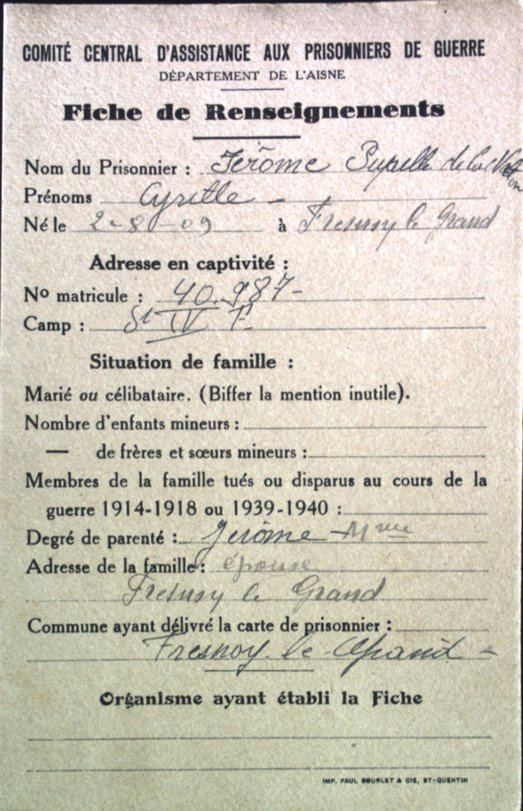 COMITÉ CENTRAL D'ASSISTANCE AUX PRISONNIERS DE GUERRE
DÉPARTEMENT DE L'AISNE
Fiche de Renseignements
Nom du Prisonnier : Jérôme Pupille de la Nation
Prénoms Cyrille -
Né le 2-8-09 à Fresnoy le Grand
Adresse en captivité :
No matricule : 40.987-
Camp : St IV F
Situation de famille :
Marié ou célibataire. (Biffer la mention inutile).
Nombre d'enfants mineurs :
— de frères et sœurs mineurs :
Membres de la famille tués ou disparus au cours de la
guerre 1914-1918 ou 1939-1940 :
Degré de parenté : Jérôme - Mme
Adresse de la famille : épouse
Fresnoy le Grand
Commune ayant délivré la carte de prisonnier :
Fresnoy le Grand -
Organisme ayant établi la Fiche
IMP. PAUL BOURLET & CIE, ST-QUENTIN